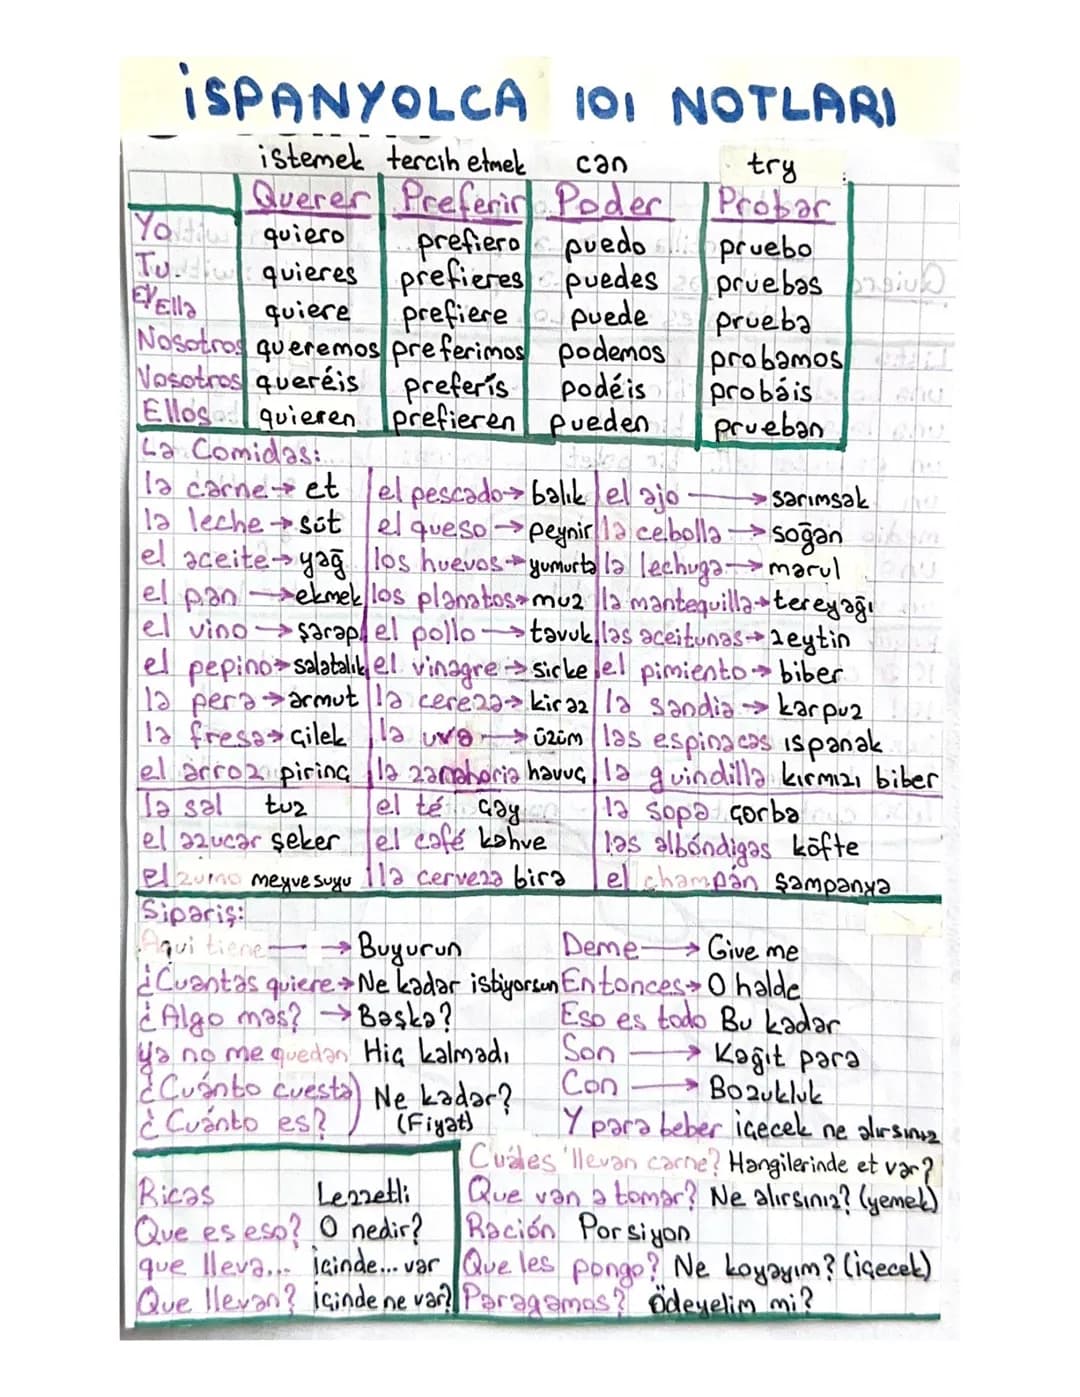 İSPANYOLCA 101 NOTLARI
istemek tercih etmek can try
Querer Preferir Poder Probar
Yo quiero prefiero puedo pruebo
Tu. quieres prefieres puedes pruebas
El/Ella quiere prefiere puede prueba
Nosotros queremos preferimos podemos probamos
Vosotros queréis preferís podéis probáis
Ellos quieren prefieren pueden prueban
La Comidas:
la carne → et el pescado → balık el ajo → sarımsak
la leche → süt el queso → peynir la cebolla → soğan
el aceite → yağ los huevos → yumurta la lechuga → marul
el pan → ekmek los planatos → muz la mantequilla → tereyağı
el vino → şarap el pollo → tavuk las aceitunas → zeytin
el pepino → salatalık el vinagre → sirke el pimiento → biber
la pera → armut la cereza → kiraz la sandia → karpuz
la fresa → çilek la uva → üzüm las espinacas ıspanak
el arroz pirinç la zanahoria havuç la guindilla kırmızı biber
la sal tuz el té çay la sopa çorba
el azucar şeker el café kahve las albóndigas köfte
el zumo meyve suyu la cerveza bira el champán şampanya
Sipariş:
Aqui tiene → Buyurun Deme → Give me
¿Cuantas quiere → Ne kadar istiyorsun Entonces → O halde
¿Algo mas? → Başka? Eso es todo Bu kadar
ya no me quedan Hiç kalmadı Son → Kağıt para
¿Cuánto cuesta Ne kadar? Con → Bozukluk
¿Cuánto es? (Fiyat) Y para beber içecek ne alırsınız
Cuáles llevan carne? Hangilerinde et var?
Ricas Lezzetli Que van a tomar? Ne alırsınız? (yemek)
Que es eso? O nedir? Ración Porsiyon
que lleva... içinde... var Que les pongo? Ne koyayım? (içecek)
Que llevan? içinde ne var? Paragamos? Ödeyelim mi?